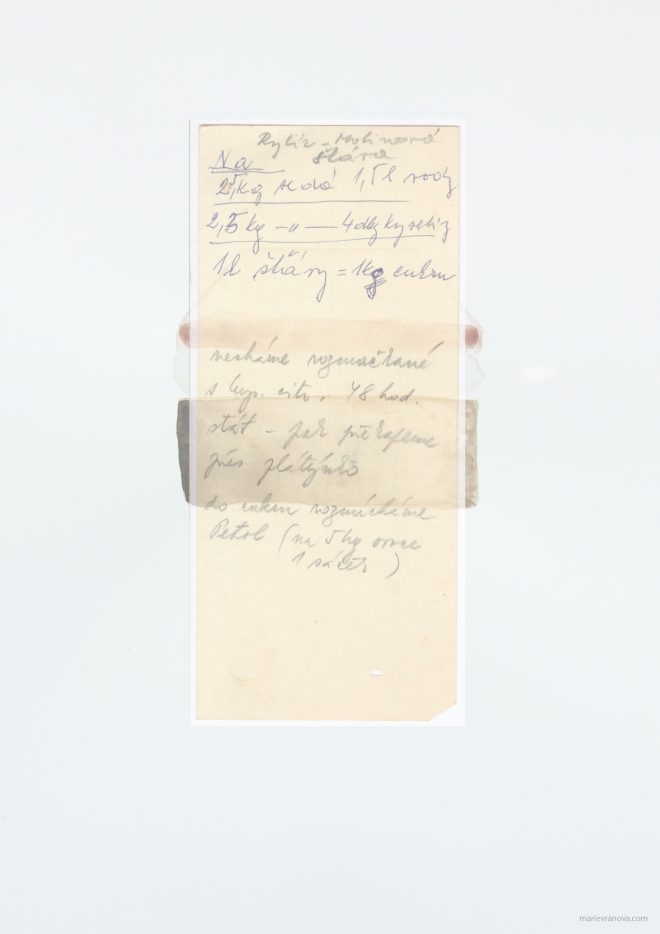 Rybíz - Malinová
šťáva
Na
2,5kg se dá 1,5l vody
2,5kg -"- 4dkg kyseliny
1l šťávy = 1kg cukru
necháme rozmačkané
s kys. citr. 48 hod.
stát - pak překapeme
přes plátýnko
do cukru rozmícháme
Petol (na 5kg ovoce
1 sáček)
marievranova.com